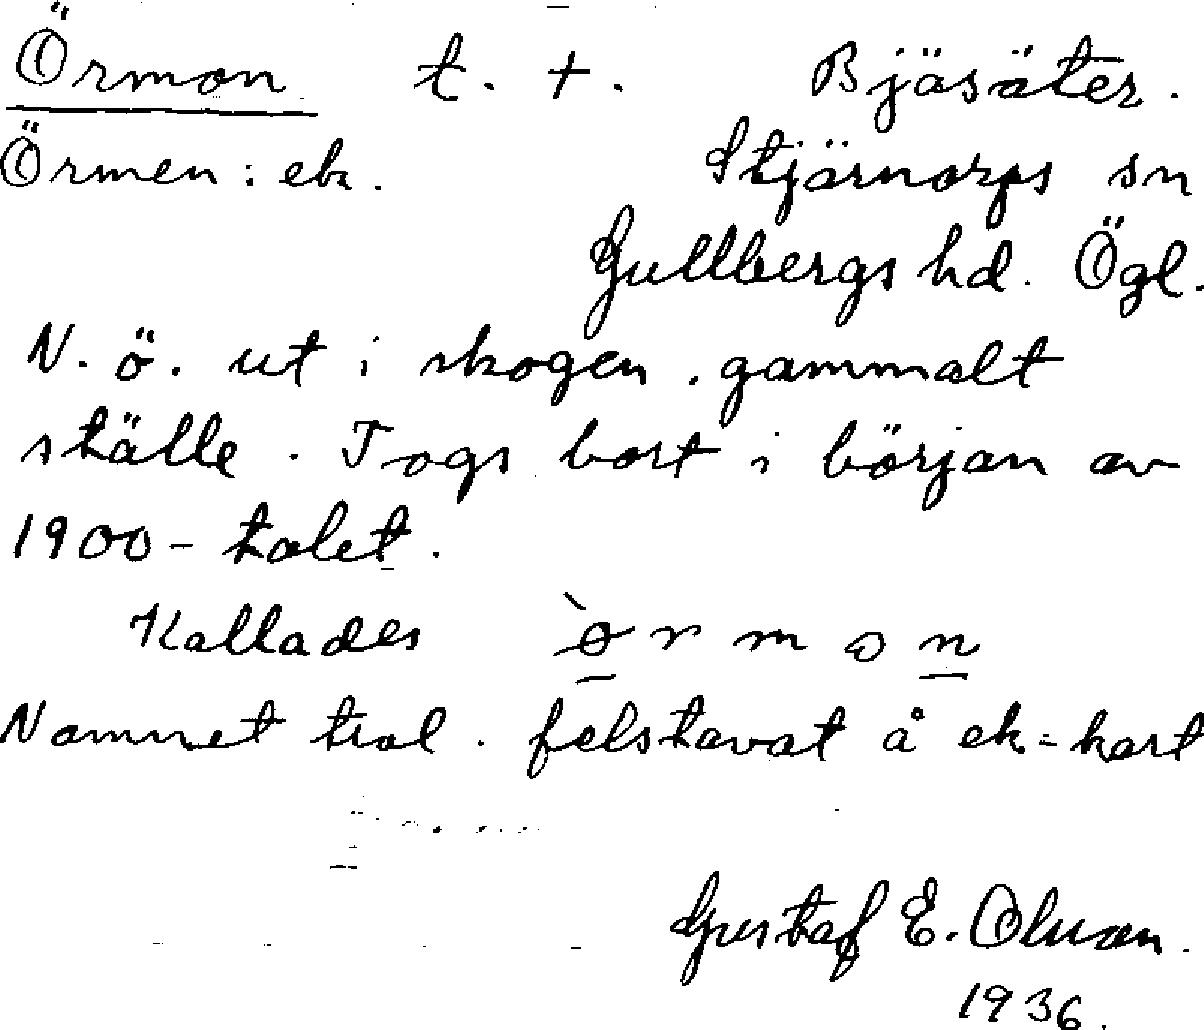 Örmon t. +. Bjäsäter.
Örmen: ek. Stjärnorps sn
Gullbergs hd. Ögl.
N. ö. ut i skogen. gammalt
ställe. Togs bort i början av
1900-talet.
Kallades òrmon
Namnet trol. felstavat å ek-kart
Gustaf E. Olsson.
1936.